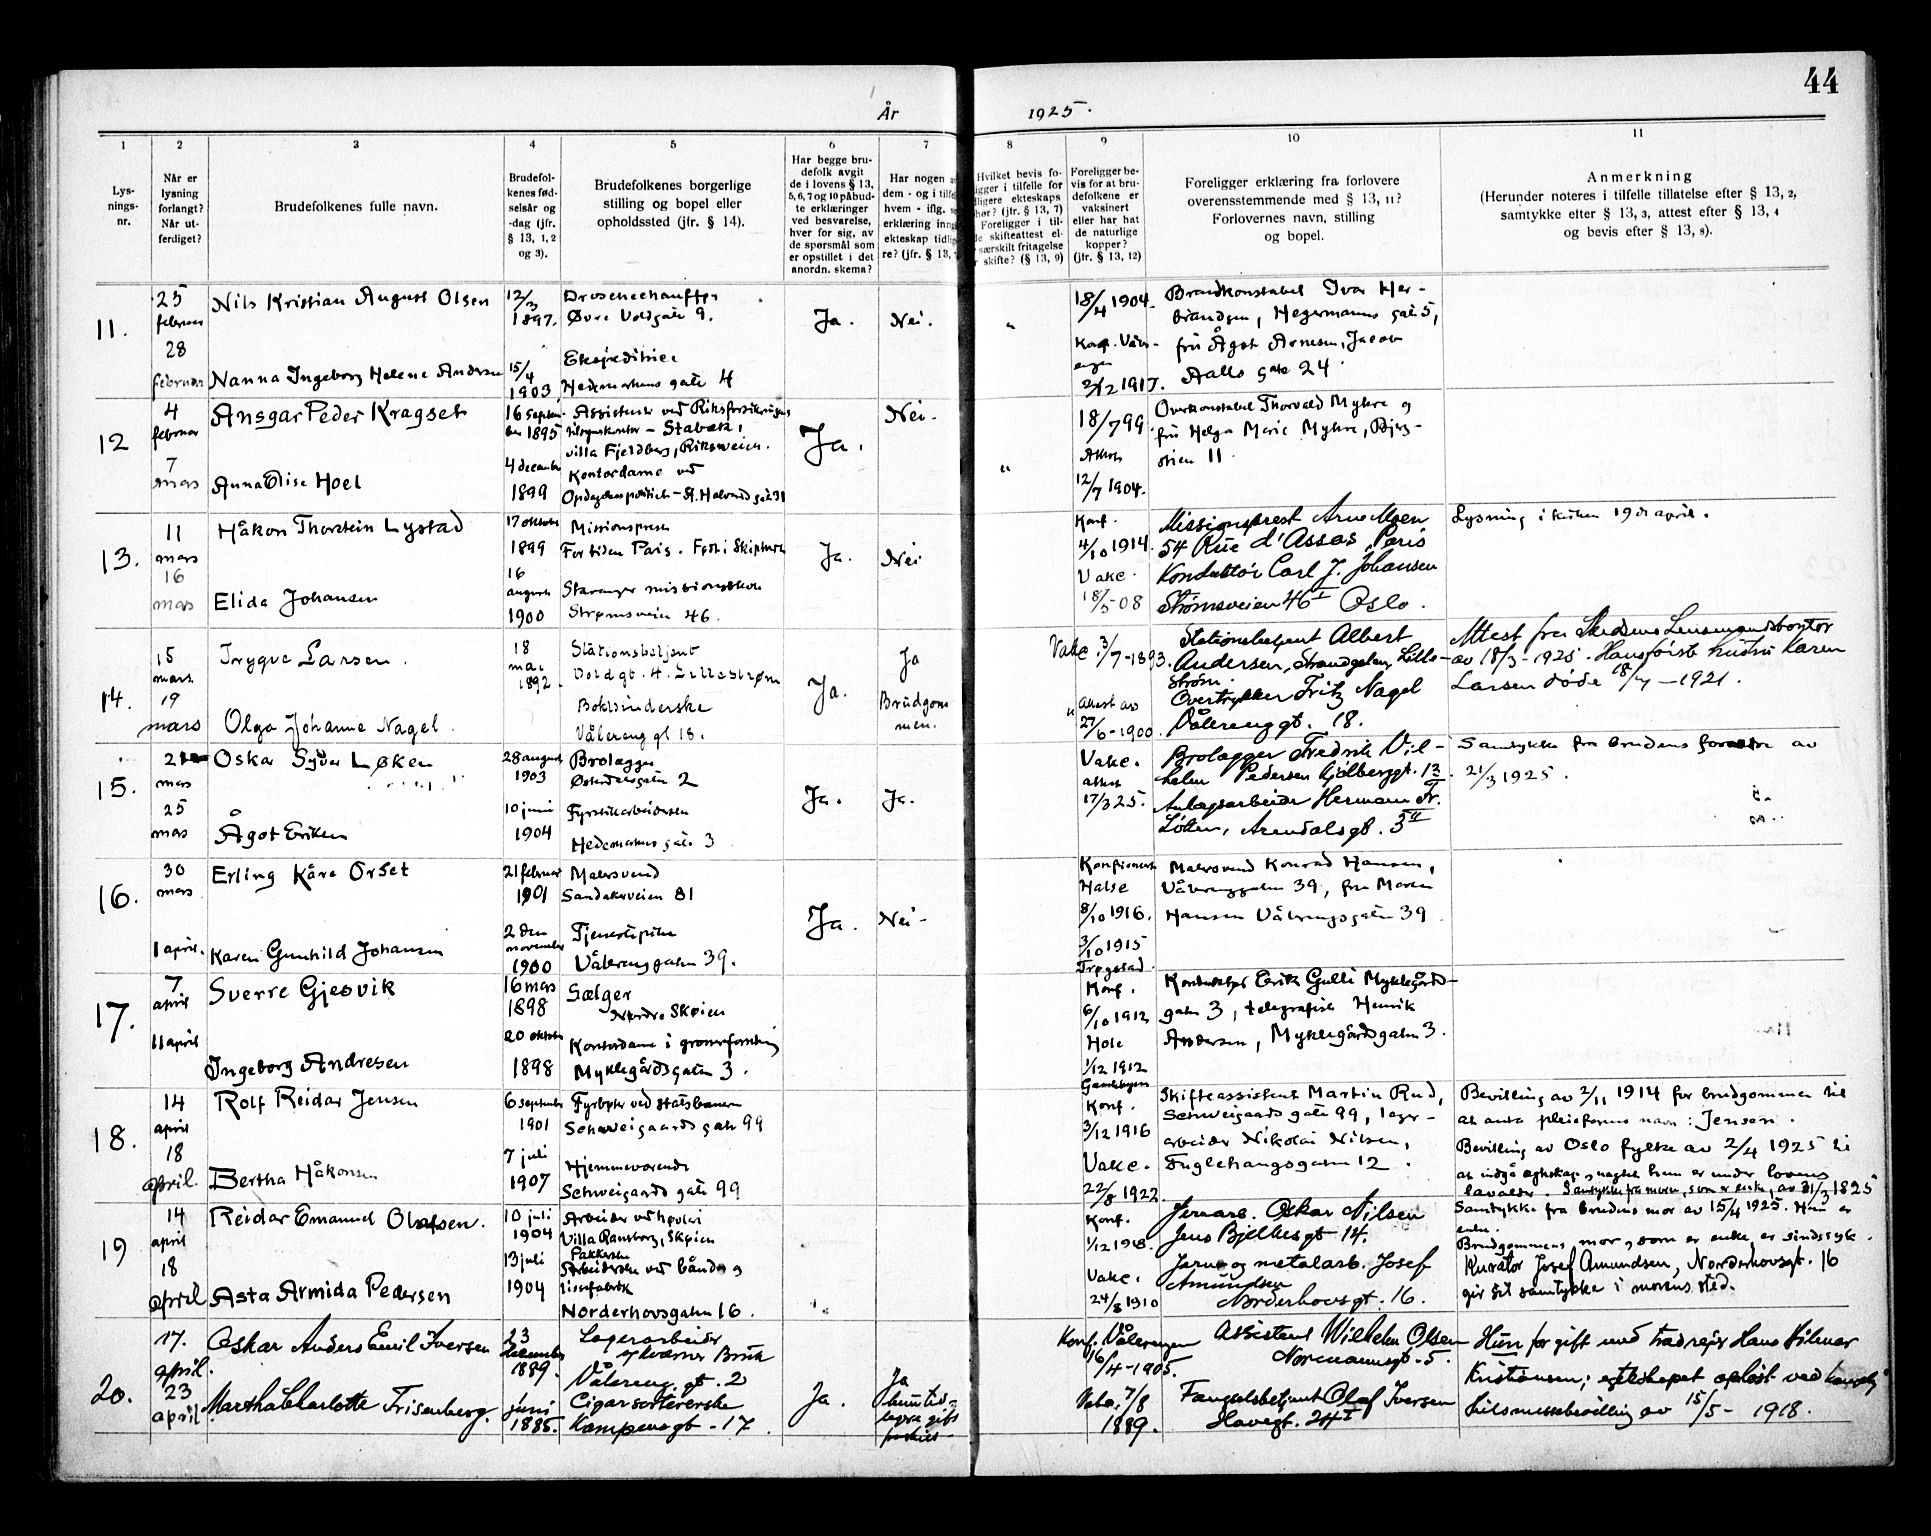 44
År 1925.
1 2 3 4 5 6 7 8 9 10 11
Lys-
nings-
nr.
Når er
lysning
forlangt?
Når ut-
ferdiget?
Brudefolkenes fulle navn.
Brudefol-
kenes fød-
selsår og
-dag (jfr.
§ 13, 1, 2
og 3).
Brudefolkenes borgerlige
stilling og bopel eller
opholdssted (jfr. § 14).
Har begge bru-
defolk avgit
de i lovens § 13,
5, 6, 7 og 10 påbud-
te erklæringer
ved besvarelse,
hver for sig, av
de spørsmål som
er opstillet i det
anordn. skema?
Har nogen
dem - og i tilf
hvem - iflg.
erklæring inn
ekteskap tidli
re? (jfr. § 13,
Hvilket bevis fo-
igger i tilfelle for
dligere ekteskaps
hør? (jfr. § 13, 7)
Foreligger i til-
le skifteattest el-
særskilt fritagelse
skifte? (§ 13, 9)
Foreligger be-
vis for at bru-
defolkene er
vaksinert
eller har hat
de naturlige
kopper?
(jfr. § 13, 12)
Foreligger erklæring fra forlovere
overensstemmende med § 13, 11?
Forlovernes navn, stilling
og bopel.
Anmerkning
(Herunder noteres i tilfelle tillatelse efter § 13, 2,
samtykke efter § 13, 3, attest efter § 13, 4
og bevis efter § 13, 8).
11.
25
februar
28
februar
Nils Kristian August Olsen
Nanna Ingeborg Helene Andersen
12/3
1897.
15/4
1903
Øvre Voldgate 9.
Hedemarkens gate 4
Ja.
Nei.
"
18/4 1904.
Konf. Våler-
engen
2/12 1917.
Brandkonstabel Ivar Her-
brandsen, Hegermanns gate 5,
fru Ågot Arnesen, Jacob
Aalls gate 24.
12
4
februar
7
mars
Ansgar Peder Kragset
Anna Elise Hoel
16 septem-
ber 1895
4 december
1899
Assistent ved Riksforsikrings
tilsynskontor – Stabæk,
villa Fjeldberg, Riksveien.
Kontordame ved
Opdagelsespolitiet – St. Halvards gate 31
Ja.
Nei.
"
18/7 99
Attest
12/7 1904.
Overkonstabel Thorvald Myhre og
fru Helga Marie Myhre, Bjerg-
stien 11.
13.
11
mars
16
mars
Håkon Thorstein Lystad
Elida Johansen
17 oktober
1899
16
august
1900
Missionsprest
For tiden Paris. Født i Skiptvet
Stavanger missionsskole
Strømsveien 46.
Ja.
Nei
Konf.
4/10 1914.
Vake.
18/5-08
Missionsprest Arne Moen
54 Rue d'Assas, Paris
Konduktør Carl J. Johansen
Strømsveien 46 I Oslo.
Lysning i kirken 19de april.
14.
15
mars
19
mars
Trygve Larsen.
Olga Johanne Nagel.
18
mai
1892.
Stationsbetjent
Voldgt. 4. Lillestrøm
Bokbinderske
Vålereng gt 18.
Ja.
Ja
Brudgom-
men.
"
Vakc. 3/7-1893.
Attest av
27/6-1900.
Stationsbetjent Albert
Andersen, Strandgaten, Lille-
strøm.
Overtrykker Fritz Nagel
Vålerenggt. 18.
Attest fra Skedsmo Lensmandskontor
av 18/3-1925. Hans første hustru Karen
Larsen døde 18/7-1921.
15.
21
mars
25
mars
Oskar Syver Løken
Ågot Eriksen
28 august
1903
10 juni
1904
Brolægger
Østerdalsgaten 2
Fyrstikarbeiderske
Hedemarkens gate 3
Ja.
Ja.
Vakc.
attest
17/3 25.
Brolægger Fredrik Vil-
helm Pedersen Kjølberggt. 13.
Anlægsarbeider Hermann Fr.
Løken, Arendalsgt. 3 II
Samtykke fra brudens forældre av
21/3 1925.
16.
30
mars
1 april.
Erling Kåre Orset
Karen Gunhild Johansen
21 februar
1901
2den
november
1900
Malersvend
Sandakerveien 81
Tjenestepike
Vålerenggaten 39.
Ja.
Nei-
Konfirmert
Halse
8/10 1916.
3/10 1915
Trøgstad
Malersvend Konrad Hansen,
Vålerenggaten 39, fru Maren
Hansen Vålerenggaten 39
17.
7
april
11 april
Sverre Gjesvik
Ingeborg Andresen
16 mars
1898
20 oktober
1898
Sælger
Nordre Skøien
Kontordame i grønrforretning
Myklegårdsgaten 3.
Konf.
6/10 1912
Hole
1/12 1912
Gamlebyen
Konduktør Erik Gulli Myklegårds-
gaten 3, telegrafist Henrik
Andersen, Myklegårdsgaten 3.
18.
14
april
18
april.
Rolf Reidar Jensen
Bertha Håkonsen
6 september
1901
7 juli
1907
Fyrbøter ved statsbanen
Schweigaards gate 99
Hjemmeværende
Schweigaards gate 99
Konf.
3/12 1916
Vakc.
22/8 1922.
Skifteassistent Martin Rud,
Schweigaards gate 99, lager-
arbeider Nikolai Nilsen,
Fuglehaugsgaten 12.
Bevilling av 2/11 1914 for brudgommen til
at anta pleiefarens navn: Jensen.
Bevilling av Oslo fylke av 2/4 1925 til
at indgå egteskap, uagtet hun er under lovens
lavalder. Samtykke fra moren, som er enke, av 31/3 1825
19
14
april
18
april
Reidar Emanuel Olafsen.
Asta Armida Pedersen
10 juli
1904
13 juli
1904
Arbeider
Villa Ransborg, Skøien
Pakkerske
Arbeiderske ved bånd- og
lissefabrik
Norderhovsgaten 16.
Konf.
1/12 1918.
Vakc.
24/8 1910
Jernarb. Oskar Nilsen
Jens Bjelkesgt 14.
Jern og metalarb. Josef
Amundsen
Norderhovsgt. 16.
Samtykke fra brudens mor av 15/4 1925. Hun er
enke.
Brudgommens mor, som er enke, er sindssyk.
Kurator Josef Amundsen, Norderhovsgt. 16
gir sit samtykke i morens sted.
20.
17.
april.
23
april
Oskar Anders Emil Iversen
Martha Charlotte Frisenberg.
23
december
1889.
juni
1885.
Lagerarbeider
Kværner Bruk
Vålereng. gt. 2
Cigarsortererske
Kampensgt - 17
Ja.
Ja
hun tid-
ligere gift
Konf. Vålerengen
16/4-1905.
Vakc. 7/8
1889.
Assistent Wilhelm Olsen
Normannsgt. 5.
Fængselsbetjent Olaf Iversen
Havegt. 24 I
Hun før gift med Hans Hilmar
Kristiansen; egteskapet opløst ved
skilsmissebevilling av 15/5 - 1918.